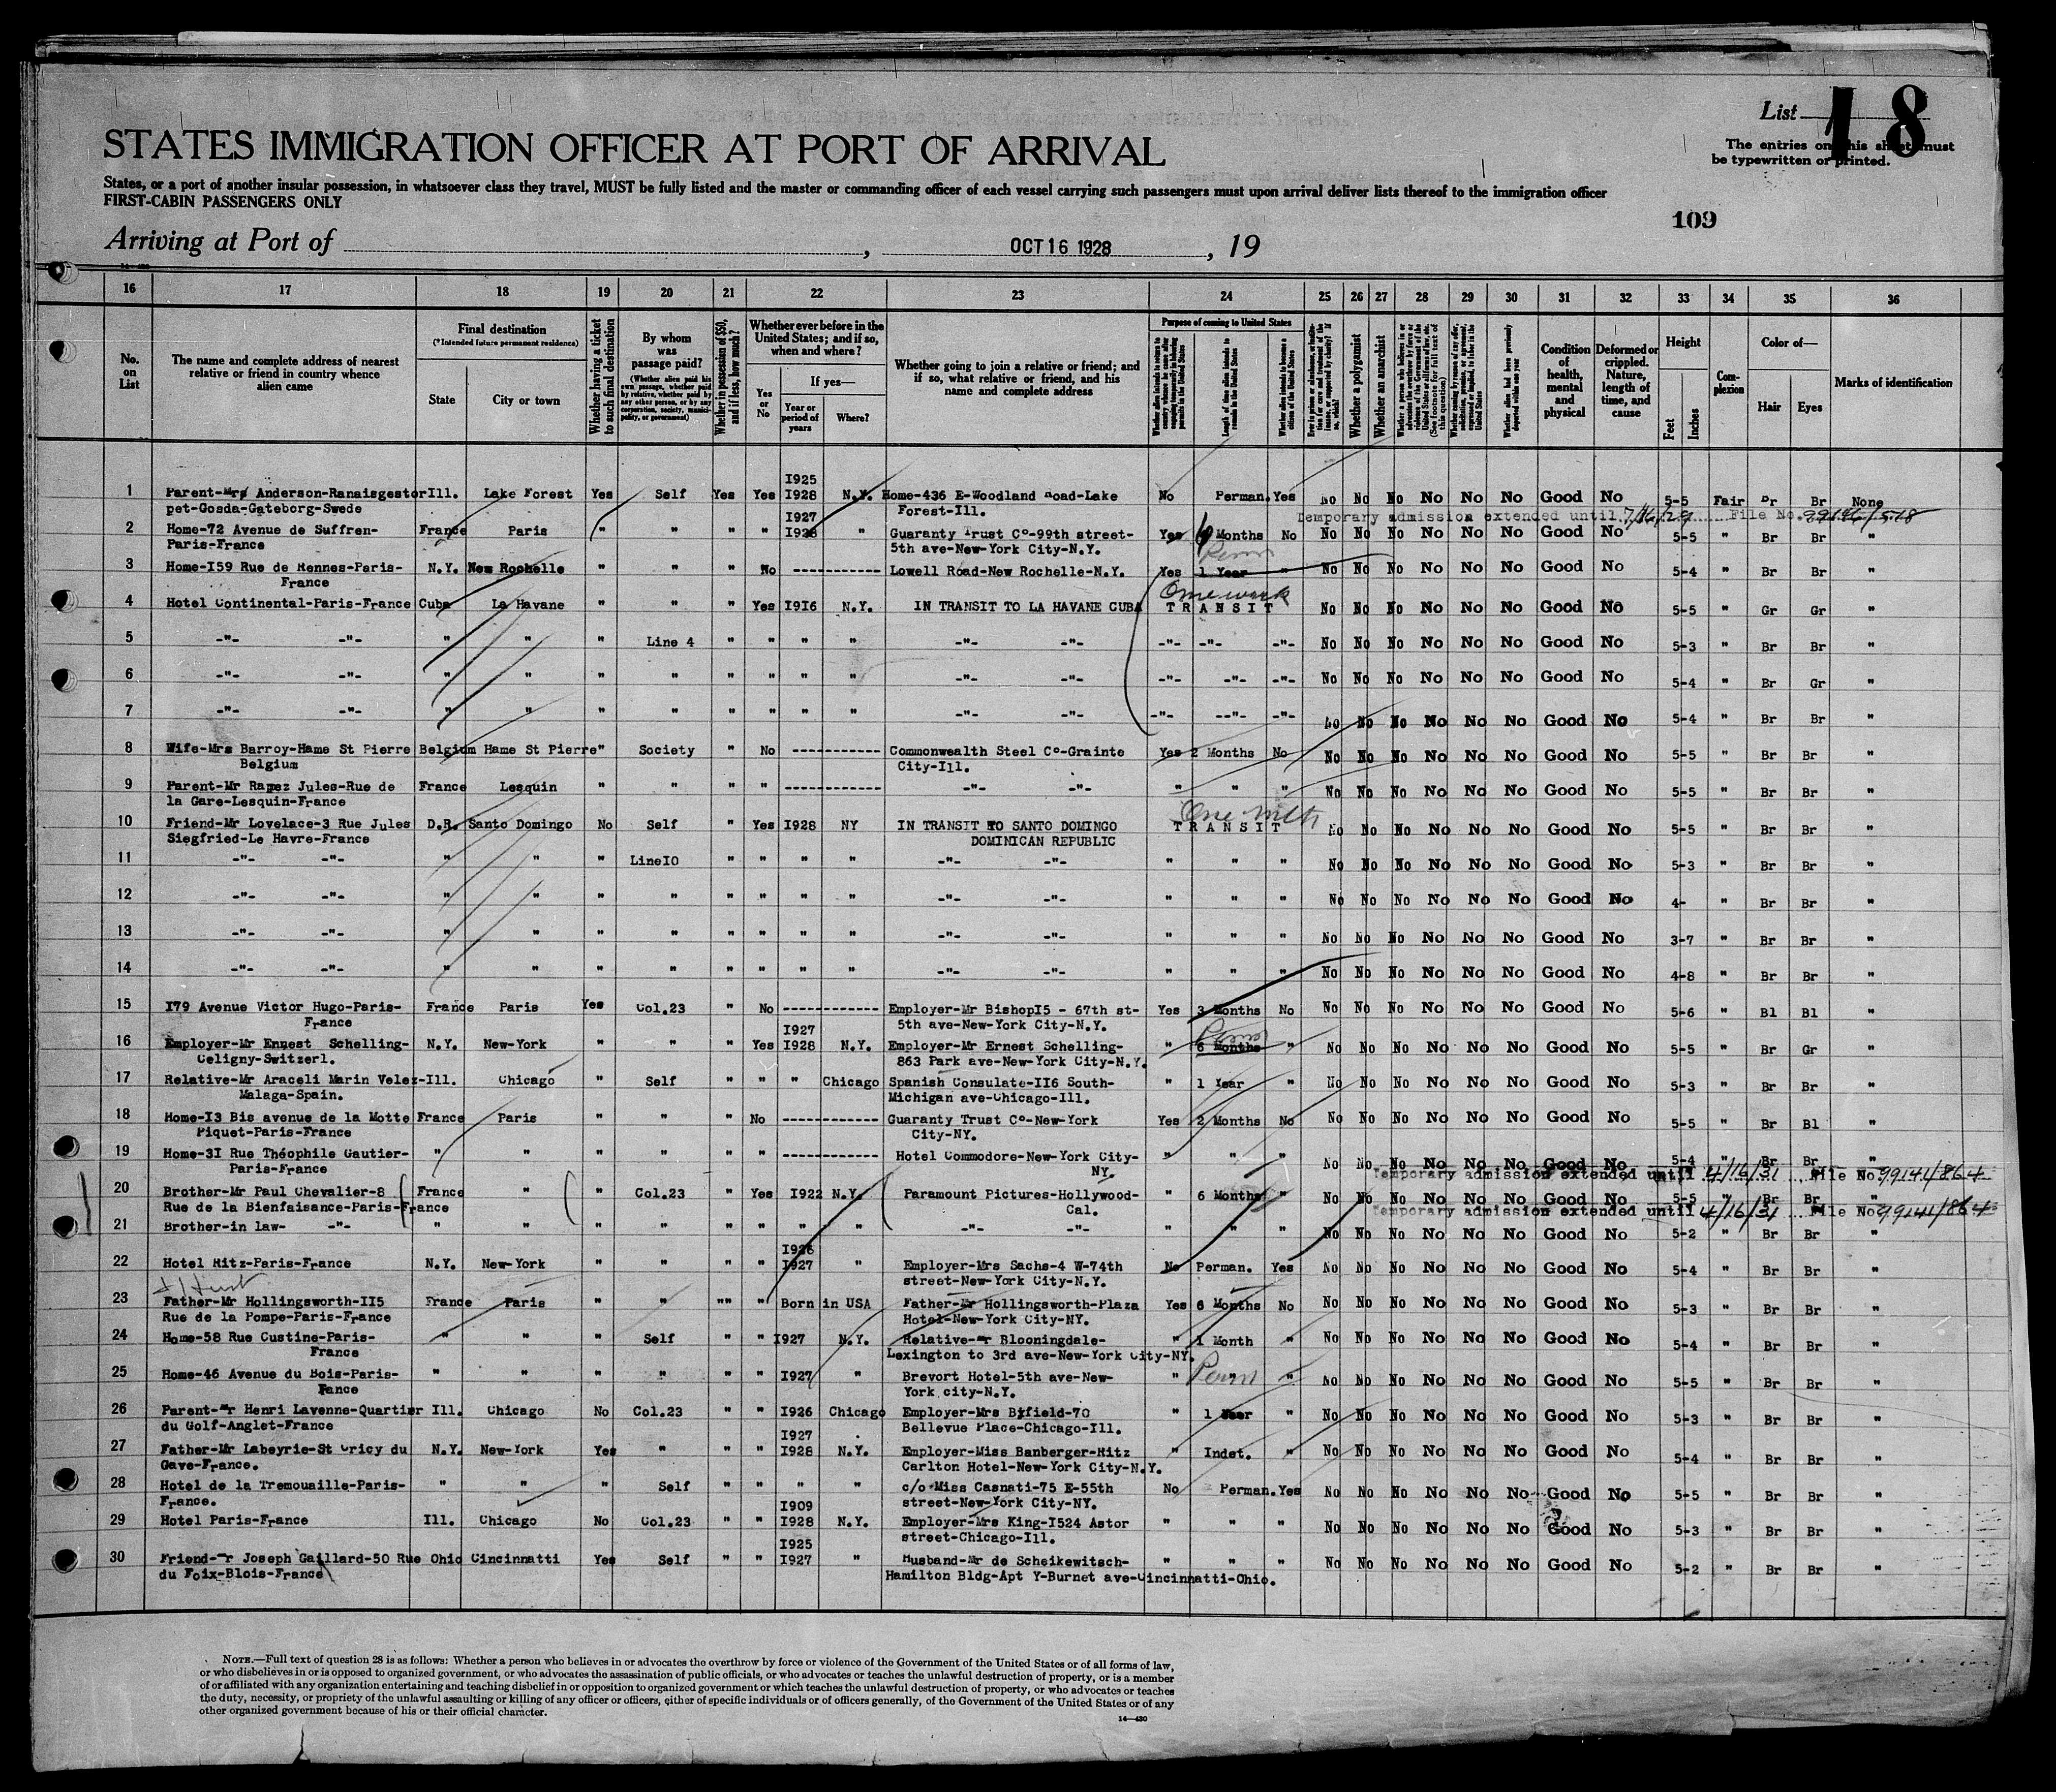 List 18
STATES IMMIGRATION OFFICER AT PORT OF ARRIVAL
The entries on this sheet must
be typewritten or printed.
States, or a port of another insular possession, in whatsoever class they travel, MUST be fully listed and the master or commanding officer of each vessel carrying such passengers must upon arrival deliver lists thereof to the immigration officer
FIRST-CABIN PASSENGERS ONLY
109
Arriving at Port of , OCT 16 1928 , 19
16 17 18 19 20 21 22 23 24 25 26 27 28 29 30 31 32 33 34 35 36
No. on List
The name and complete address of nearest relative or friend in country whence alien came
Final destination (*Intended future permanent residence)
State City or town
Whether having a ticket to such final destination
By whom was passage paid? (Whether alien paid his own passage, whether paid by relative, whether paid by any other person, or by any corporation, society, municipality, or government)
Whether in possession of $50, and if less, how much?
Whether ever before in the United States; and if so, when and where?
Yes or No If yes— Year or period of years Where?
Whether going to join a relative or friend; and if so, what relative or friend, and his name and complete address
Purpose of coming to United States
Length of time alien intends to remain in the United States
Whether alien intends to become a citizen of the United States
Whether a polygamist
Whether an anarchist
Condition of health, mental and physical
Deformed or crippled. Nature, length of time, and cause
Height Feet Inches
Complexion
Color of— Hair Eyes
Marks of identification
1 Parent-Mrs Anderson-Ranaisgestor Ill. Lake Forest Yes Self Yes Yes I925 I928 N.Y. Home-436 E-Woodland Road-Lake No Perman. Yes No No No No No No Good No 5-5 Fair Br Br None
pet-Gosda-Gateborg-Swede Forest-Ill.
Temporary admission extended until 7/16/29 File No. 99146/518
2 Home-72 Avenue de Suffren- France Paris " " " " I927 I928 " Guaranty Trust Co-99th street- Yes 6 Months No No No No No No No Good No 5-5 " Br Br "
Paris-France 5th ave-New-York City-N.Y.
Perm
3 Home-I59 Rue de Rennes-Paris- N.Y. New Rochelle " " " No ----------- Lowell Road-New Rochelle-N.Y. Yes 1 Year " No No No No No No Good No 5-4 " Br Br "
France
One week
4 Hotel Continental-Paris-France Cuba La Havane " " " Yes I9I6 N.Y. IN TRANSIT TO LA HAVANE CUBA TRANSIT No No No No No No Good No 5-5 " Gr Gr "
5 -"- -"- " " " Line 4 " " " " -"- -"- -"- -"- -"- No No No No No No Good No 5-3 " Br Br "
6 -"- -"- " " " " " " " " -"- -"- -"- -"- -"- No No No No No No Good No 5-4 " Br Gr "
7 -"- -"- " " " " " " " " -"- -"- -"- --"- -"- No No No No No No Good No 5-4 " Br Br "
8 Wife-Mrs Barroy-Hame St Pierre Belgium Hame St Pierre " Society " No ----------- Commonwealth Steel Co-Grainte Yes 2 Months No No No No No No No Good No 5-5 " Br Br "
Belgium City-Ill.
9 Parent-Mr Rapez Jules-Rue de France Lesquin " " " " ----------- -"- -"- " " " No No No No No No Good No 5-5 " Br Br "
la Gare-Lesquin-France
One mth
10 Friend-Mr Lovelace-3 Rue Jules D.R. Santo Domingo No Self " Yes I928 NY IN TRANSIT TO SANTO DOMINGO TRANSIT No No No No No No Good No 5-5 " Br Br "
Siegfried-Le Havre-France DOMINICAN REPUBLIC
11 -"- -"- " " " LineI0 " " " " -"- -"- " " " No No No No No No Good No 5-3 " Br Br "
12 -"- -"- " " " " " " " " -"- -"- " " " No No No No No No Good No 4- " Br Br "
13 -"- -"- " " " " " " " " -"- -"- " " " No No No No No No Good No 3-7 " Br Br "
14 -"- -"- " " " " " " " " -"- -"- " " " No No No No No No Good No 4-8 " Br Br "
15 I79 Avenue Victor Hugo-Paris- France Paris Yes Col.23 " No ------------ Employer-Mr BishopI5 - 67th st- Yes 3 Months No No No No No No No Good No 5-6 " Bl Bl "
France 5th ave-New-York City-N.Y.
Perm
16 Employer-Mr Ernest Schelling- N.Y. New-York " " " Yes I927 I928 N.Y. Employer-Mr Ernest Schelling- " 6 Months " No No No No No No Good No 5-5 " Br Gr "
Celigny-Switzerl. 863 Park ave-New-York City-N.Y.
17 Relative-Mr Araceli Marin Velez- Ill. Chicago " Self " " " Chicago Spanish Consulate-II6 South- " 1 Year " No No No No No No Good No 5-3 " Br Br "
Malaga-Spain. Michigan ave-Chicago-Ill.
18 Home-I3 Bis avenue de la Motte France Paris " " " No ----------- Guaranty Trust Co-New-York Yes 2 Months No No No No No No No Good No 5-5 " Br Bl "
Piquet-Paris-France City-NY.
19 Home-3I Rue Théophile Gautier- " " " " " " ----------- Hotel Commodore-New-York City- " " " No No No No No No Good No 5-4 " Br Br "
Paris-France NY.
Temporary admission extended until 4/16/31 File No. 99141/864
20 Brother-Mr Paul Chevalier-8 France " " Col.23 " Yes I922 N.Y. Paramount Pictures-Hollywood- " 6 Months " No No No No No No Good No 5-5 " Br Br "
Rue de la Bienfaisance-Paris-France Cal.
Temporary admission extended until 4/16/31 File No. 99141/864
21 Brother-in law- -"- " " " " " " " " -"- -"- " " " No No No No No No Good No 5-2 " Br Br "
22 Hotel Ritz-Paris-France N.Y. New-York " " " " I926 I927 " Employer-Mrs Sachs-4 W-74th No Perman. Yes No No No No No No Good No 5-4 " Br Br "
street-New-York City-N.Y.
23 Father-Mr Hollingsworth-II5 France Paris " " "" " Born in USA Father-Mr Hollingsworth-Plaza Yes 6 Months No No No No No No No Good No 5-3 " Br Br "
Rue de la Pompe-Paris-France Hotel-New-York City-NY.
24 Home-58 Rue Custine-Paris- " " " Self " " I927 N.Y. Relative-Mr Blooningdale- " 1 Month " No No No No No No Good No 5-4 " Br Br "
France Lexington to 3rd ave-New-York City-NY.
25 Home-46 Avenue du Bois-Paris- " " " " " " I927 " Brevort Hotel-5th ave-New- " Perm " No No No No No No Good No 5-5 " Br Br "
Fance York city-N.Y.
26 Parent-Mr Henri Lavenne-Quartier Ill. Chicago No Col.23 " " I926 Chicago Employer-Mrs Byfield-70 " 1 Year " No No No No No No Good No 5-3 " Br Br "
du Golf-Anglet-France Bellevue Place-Chicago-Ill.
27 Father-Mr Labeyrie-St Cricy du N.Y. New-York Yes " " " I927 I928 N.Y. Employer-Miss Banberger-Ritz " Indet. " No No No No No No Good No 5-4 " Br Br "
Gave-France. Carlton Hotel-New-York City-N.Y.
28 Hotel de la Tremouaille-Paris- " " " Self " " " " c/o Miss Casnati-75 E-55th No Perman. Yes No No No No No No Good No 5-5 " Br Br "
France. street-New-York City-NY.
29 Hotel Paris-France Ill. Chicago No Col.23 " " I909 I928 N.Y. Employer-Mrs King-I524 Astor " " " No No No No No No Good No 5-3 " Br Br "
street-Chicago-Ill.
30 Friend-Mr Joseph Gaillard-50 Rue Ohio Cincinnatti Yes Self " " I925 I927 " Husband-Mr de Scheikewitsch- " " " No No No No No No Good No 5-2 " Br Br "
du Foix-Blois-France Hamilton Bldg-Apt Y-Burnet ave-Cincinnatti-Ohio.
NOTE.—Full text of question 28 is as follows: Whether a person who believes in or advocates the overthrow by force or violence of the Government of the United States or of all forms of law,
or who disbelieves in or is opposed to organized government, or who advocates the assassination of public officials, or who advocates or teaches the unlawful destruction of property, or is a member
of or affiliated with any organization entertaining and teaching disbelief in or opposition to organized government or which teaches the unlawful destruction of property, or who advocates or teaches
the duty, necessity, or propriety of the unlawful assaulting or killing of any officer or officers, either of specific individuals or of officers generally, of the Government of the United States or of any
other organized government because of his or their official character.
14—430